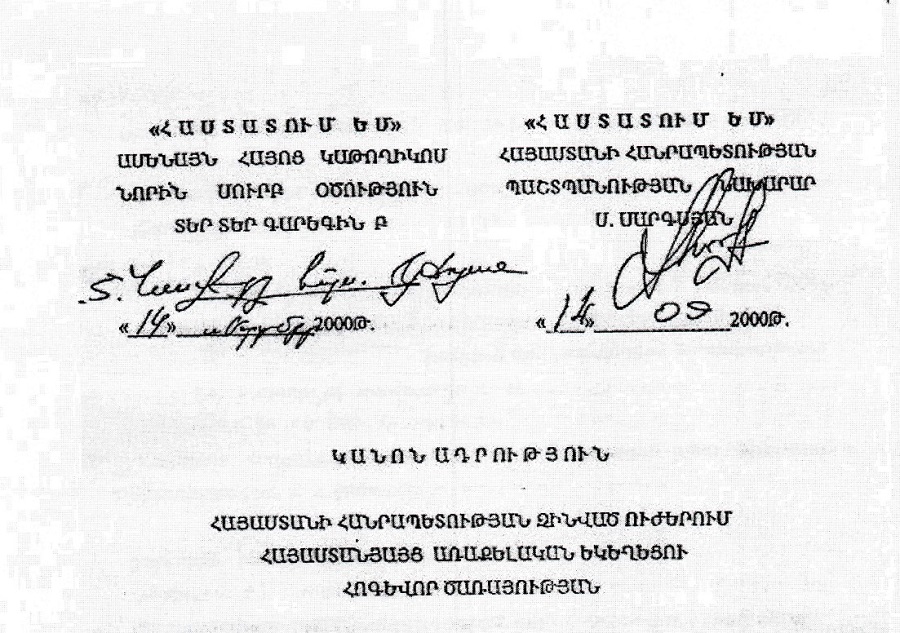 «Հ Ա Ս Տ Ա Տ ՈՒ Մ  Ե Մ»
ԱՄԵՆԱՅՆ ՀԱՅՈՑ ԿԱԹՈՂԻԿՈՍ
ՆՈՐԻՆ ՍՈՒՐԲ ՕԾՈՒԹՅՈՒՆ
ՏԵՐ ՏԵՐ ԳԱՐԵԳԻՆ Բ
«14» սեպտեմբեր 2000Թ.
«Հ Ա Ս Տ Ա Տ ՈՒ Մ  Ե Մ»
ՀԱՅԱՍՏԱՆԻ ՀԱՆՐԱՊԵՏՈՒԹՅԱՆ
ՊԱՇՏՊԱՆՈՒԹՅԱՆ ՆԱԽԱՐԱՐ
Ս. ՍԱՐԳՍՅԱՆ
«14» 09 2000Թ.
Կ Ա Ն Ո Ն Ա Դ Ր ՈՒ Թ Յ ՈՒ Ն
ՀԱՅԱՍՏԱՆԻ ՀԱՆՐԱՊԵՏՈՒԹՅԱՆ ԶԻՆՎԱԾ ՈՒԺԵՐՈՒՄ
ՀԱՅԱՍՏԱՆՅԱՅՑ ԱՌԱՔԵԼԱԿԱՆ ԵԿԵՂԵՑՈՒ
ՀՈԳԵՎՈՐ ԾԱՌԱՅՈՒԹՅԱՆ